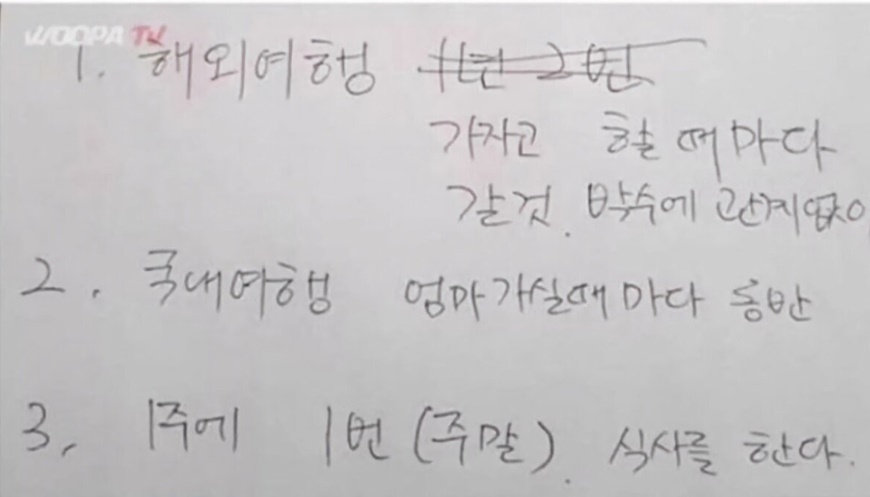 WOOPA TV
1. 해외여행 1년 2번
가자고 할 때마다
갈것. 박수에 관계없이
2. 국내여행 엄마가실때마다 동반
3. 1주에 1번 (주말). 식사를 한다.